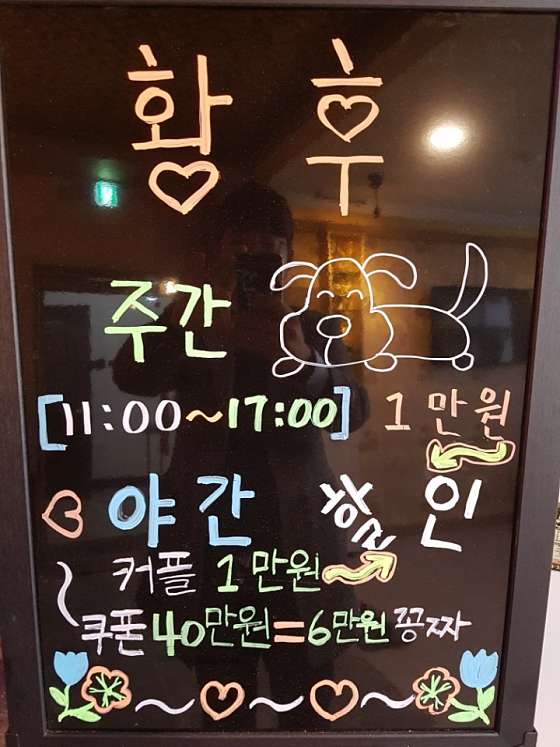 황후
주간
[11:00~17:00] 1만원
야간 할인
커플 1만원
쿠폰 40만원=6만원 꽁짜